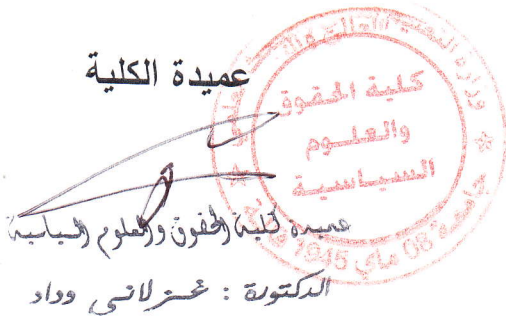 عميدة الكلية
كلية الحقوق
والعلوم
السياسية
وزارة التعليم العالي والبحث
جامعة 08 ماي 1945
عميدة كلية الحقوق والعلوم السياسية
الدكتورة : غزلاني وداد